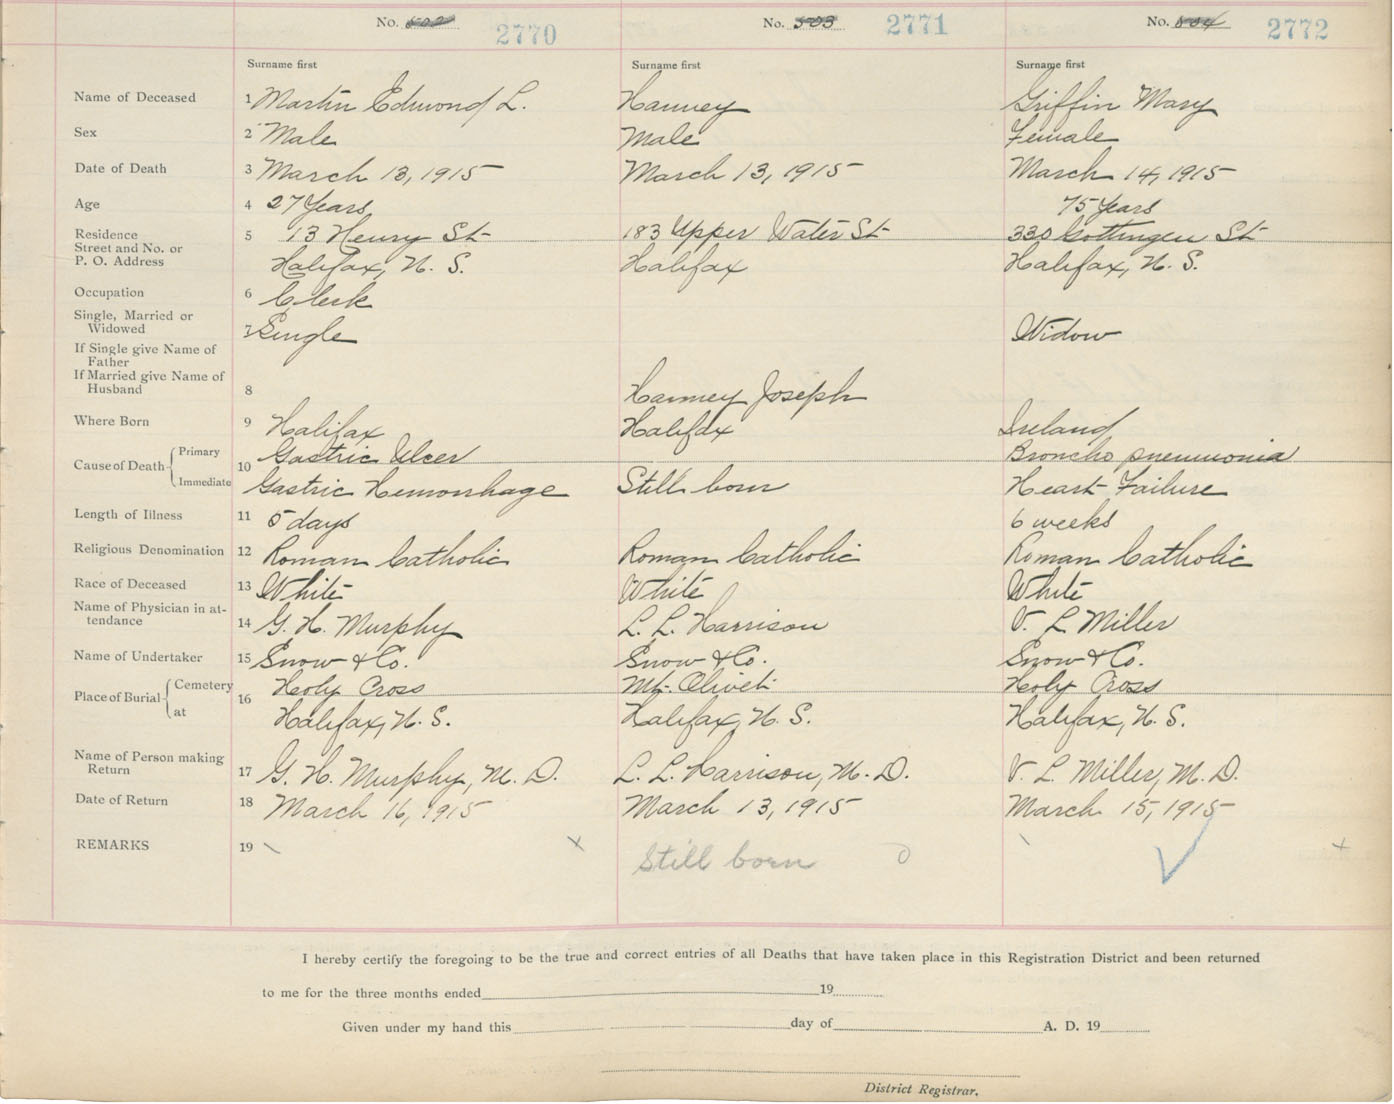 No. 502 2770 No. 503 2771 No. 504 2772
Surname first Surname first Surname first
Name of Deceased 1 Martin Edmond L. Hanney Griffin Mary
Sex 2 Male Male Female
Date of Death 3 March 13, 1915 March 13, 1915 March 14, 1915
Age 4 27 Years 75 Years
Residence 5 13 Henry St 183 Upper Water St 330 Gottingen St
Street and No. or
P. O. Address Halifax, N. S. Halifax Halifax, N. S.
Occupation 6 Clerk
Single, Married or
Widowed 7 Single Widow
If Single give Name of
Father
If Married give Name of
Husband 8 Hanney Joseph
Where Born 9 Halifax Halifax Ireland
Cause of Death Primary 10 Gastric Ulcer Broncho pneumonia
Immediate Gastric Hemorrhage Still born Heart Failure
Length of Illness 11 5 days 6 weeks
Religious Denomination 12 Roman Catholic Roman Catholic Roman Catholic
Race of Deceased 13 White White White
Name of Physician in at-
tendance 14 G. H. Murphy L. L. Harrison V. L Miller
Name of Undertaker 15 Snow & Co. Snow & Co. Snow & Co.
Place of Burial Cemetery 16 Holy Cross Mt. Olivet Holy Cross
at Halifax, N. S. Halifax, N. S. Halifax, N. S.
Name of Person making
Return 17 G. H. Murphy, M. D. L. L. Harrison, M. D. V. L. Miller, M. D.
Date of Return 18 March 16, 1915 March 13, 1915 March 15, 1915
REMARKS 19 Still born
I hereby certify the foregoing to be the true and correct entries of all Deaths that have taken place in this Registration District and been returned
to me for the three months ended 19
Given under my hand this day of A. D. 19
District Registrar.